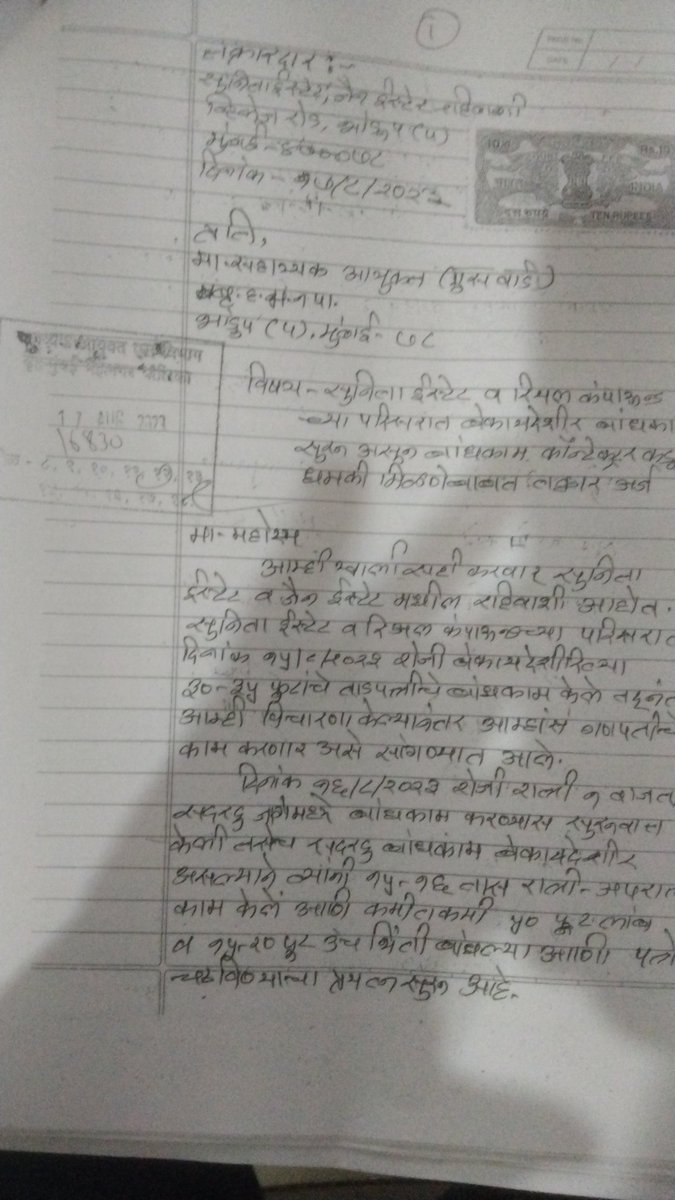 1
PAGE NO.
DATE / /
तक्रारदार :-
सुनिता ईस्टेट, जैन ईस्टेट रहिवाशी
रोड, भांडुप (प)
मुंबई - ४०००७८
दिनांक - १७/८/२०२२
TEN RUPEES
INDIA
प्रति,
मा. सहाय्यक आयुक्त (एस वार्ड)
बृ. ह. म. न. पा.
भांडुप (प), मुंबई - ७८
16830
विषय - सुनिता ईस्टेट व रिअल कंपाऊंड
च्या परिसरात बेकायदेशीर बांधका
सुरू असून बांधकाम कॉन्टॅक्टर कडू
धमकी मिळणेबाबत तक्रार अर्ज
मा. महोदय
आम्ही खाली सही करणार सुनिता
ईस्टेट व जैन ईस्टेट मधील रहिवाशी आहोत.
सुनिता ईस्टेट व रिअल कंपाऊन्डच्या परिसरात
दिनांक १५/८/२०२२ रोजी बेकायदेशीररित्या
३०-३५ फुटांचे ताडपत्रीचे बांधकाम केले तद्‌नंत
आम्ही विचारणा केल्यानंतर आम्हांस गणपतीचे
काम करणार असे सांगण्यात आले.
दिनांक १६/८/२०२२ रोजी रात्री ९ वाजत
सदरहु जागेमध्ये बांधकाम करण्यास सुरूवात
केली तसेच सदरहु बांधकाम बेकायदेशीर
असल्याने त्यांनी १५-१६ तास रात्री-अपरात
काम केले आणि कमीतकमी ५० फूट लांब
व १५-२० फूट उंच भिंती बांधल्या आणि पत्रे
चढविण्याचा प्रयत्न सुरू आहे.